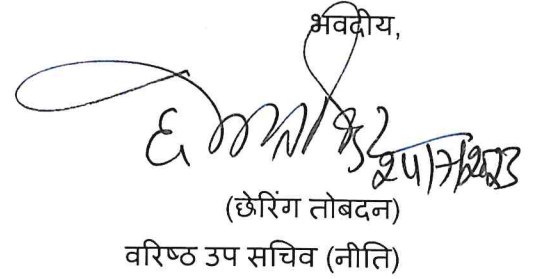 भवदीय,
25/7/2023
(छेरिंग तोबदन)
वरिष्ठ उप सचिव (नीति)